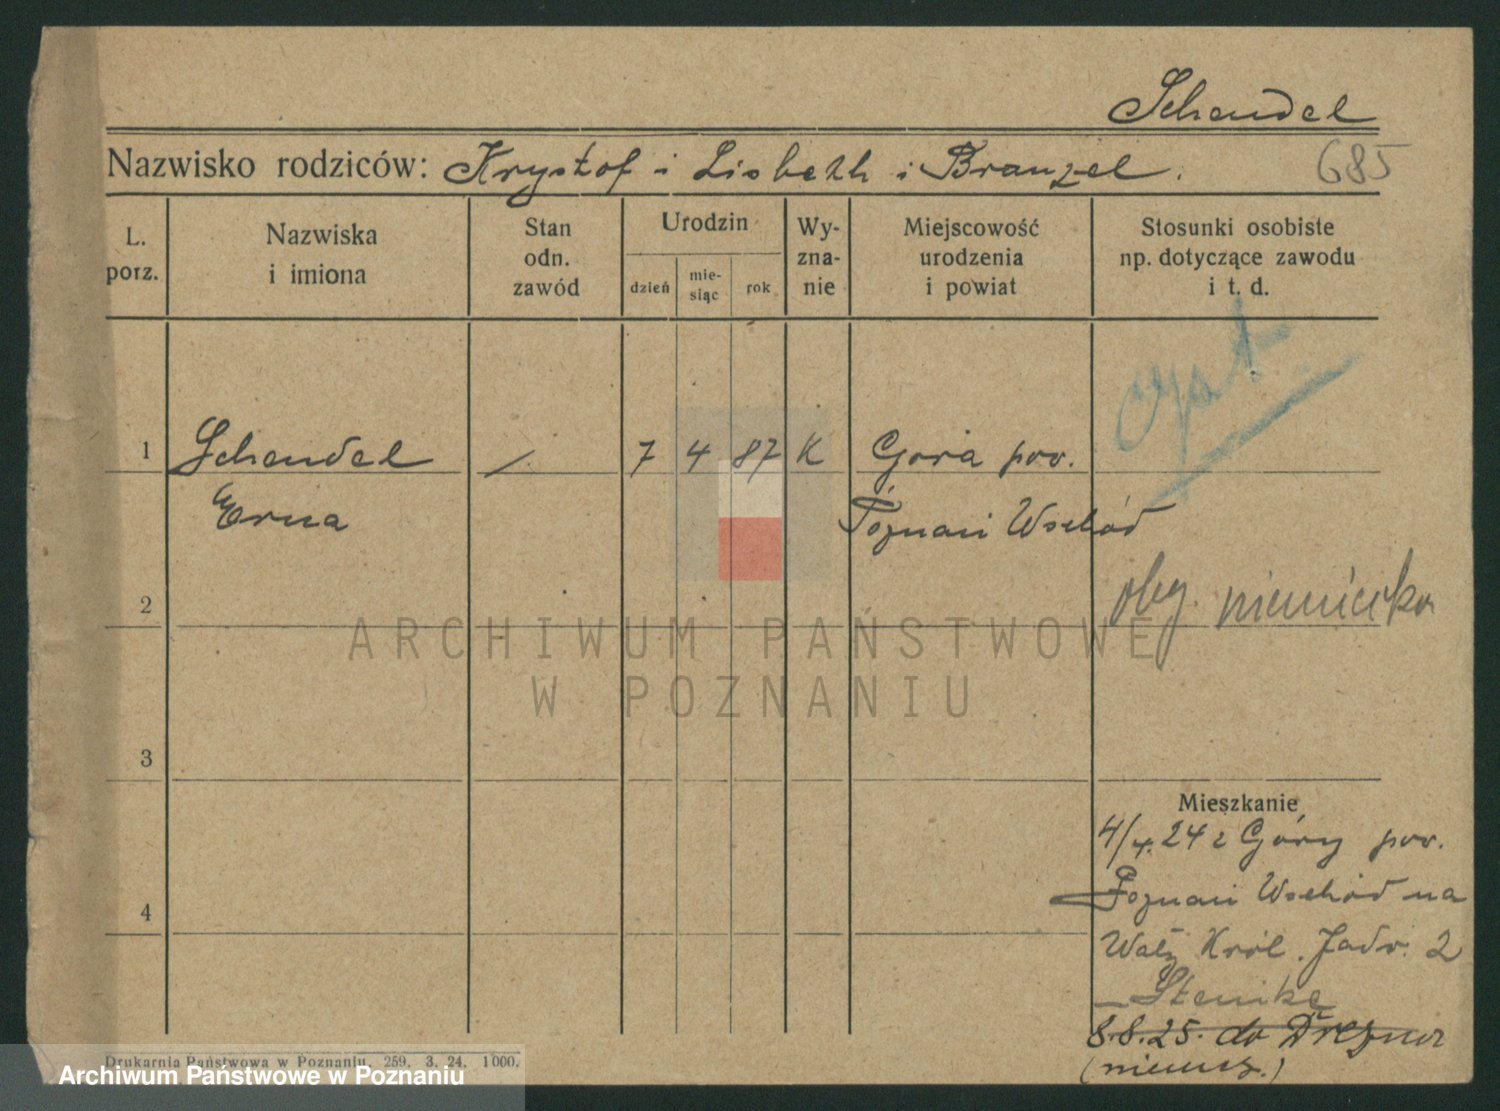 Schendel
Nazwisko rodziców: Krystof i Lisbeth i Branzel.
685
L. porz.
Nazwiska i imiona
Stan odn. zawód
Urodzin
dzień
mie-
siąc
rok
Wy-
zna-
nie
Miejscowość urodzenia i powiat
Stosunki osobiste
np. dotyczące zawodu
i t. d.
opt.
1 Schendel / 7 4 87 K Góra pow.
Erna Poznań Wschód
2
oby. niemiecka
3
Mieszkanie
4/4. 24 z Góry pow.
Poznań Wschód na
4
Wały Król. Jadw. 2
8.8.25. do Drezna
(niemcz.)
Drukarnia Państwowa w Poznaniu. 259. 3. 24. 1000.
ARCHIWUM PAŃSTWOWE
W POZNANIU
Archiwum Państwowe w Poznaniu